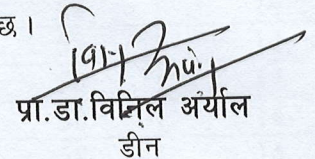 छ ।
प्रा.डा.विनिल अर्याल
डीन